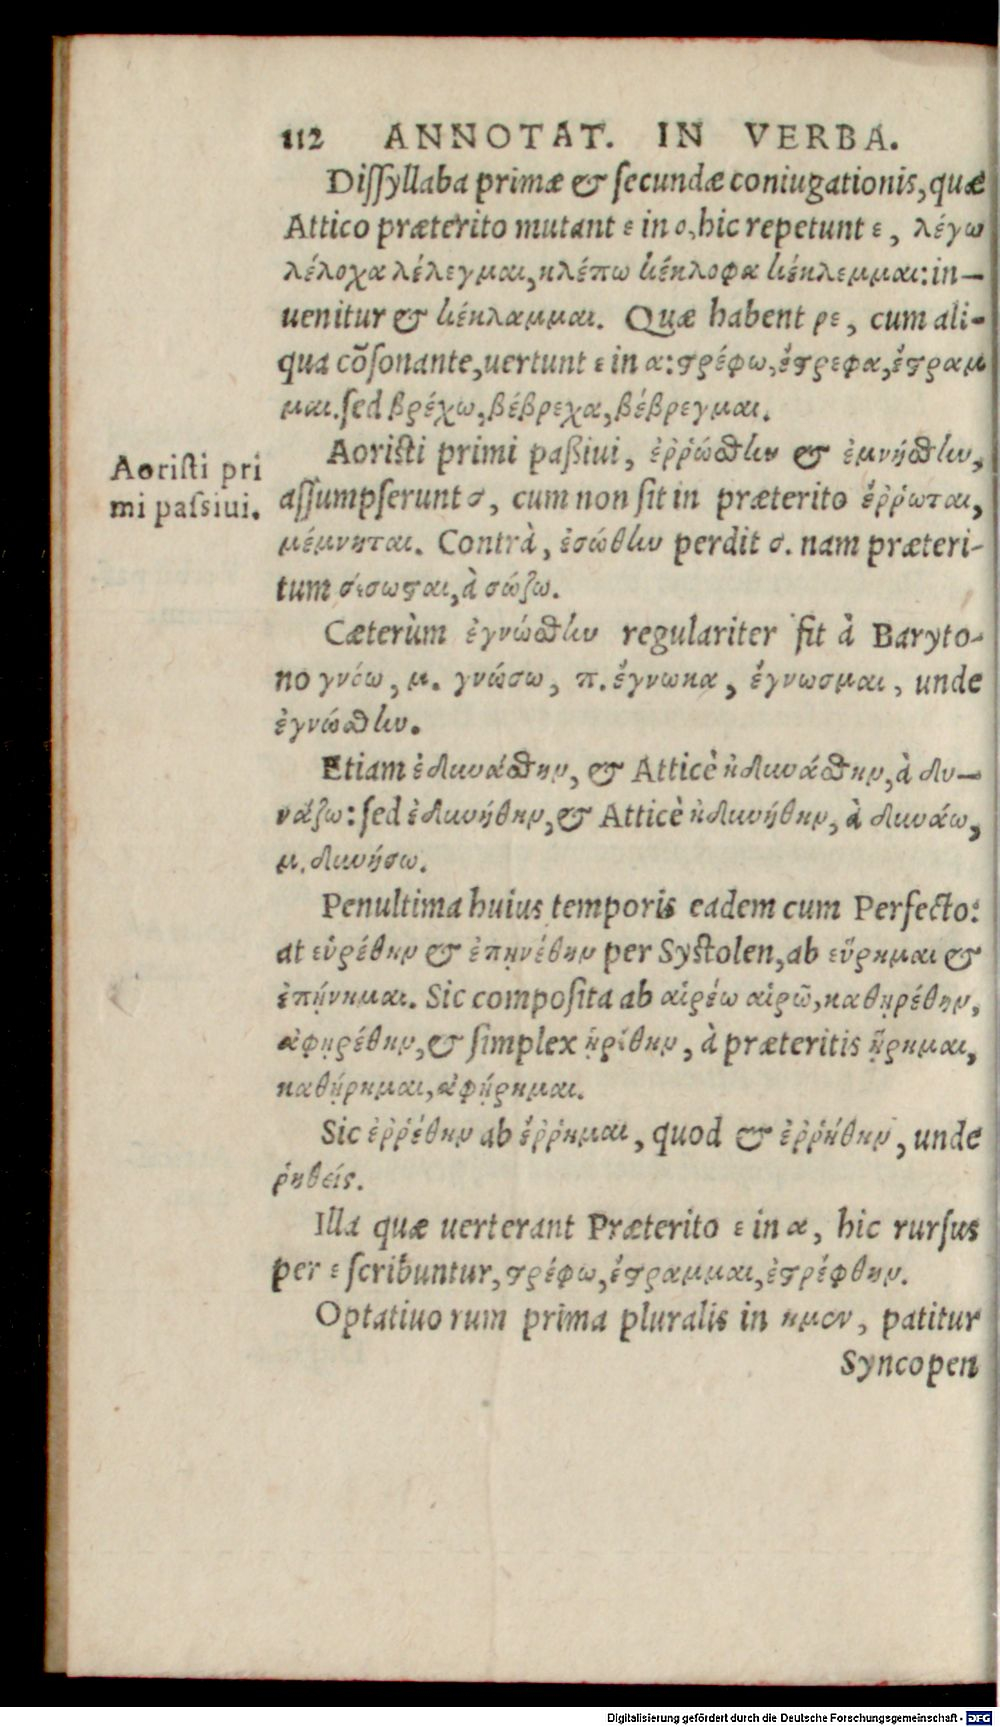 112 ANNOTAT. IN VERBA.
Dissyllaba primæ & secundæ coniugationis, quæ
Attico præterito mutant ε in ο, hic repetunt ε, λέγω
λέλοχα λέλεγμαι, κλέπω κέκλοφα κέκλεμμαι: in-
uenitur & κέκλαμμαι. Quæ habent ρε, cum ali-
qua cõsonante, uertunt ε in α: στρέφω, ἔστρεφα, ἔστραμ
μαι. sed βρέχω, βέβρεχα, βέβρεγμαι.
Aoristi pri
mi passiui.
Aoristi primi passiui, ἐῤῥώσθην & ἐμνήσθην,
assumpserunt σ, cum non sit in præterito ἔῤῥωται,
μέμνηται. Contrà, ἐσώθην perdit σ. nam præteri-
tum σέσωσται, à σώζω.
Cæterùm ἐγνώσθην regulariter fit à Baryto-
no γνόω, μ. γνώσω, π. ἔγνωκα, ἔγνωσμαι, unde
ἐγνώσθην.
Etiam ἐδυνάσθην, & Atticè ἠδυνάσθην, à δυ-
νάζω: sed ἐδυνήθην, & Atticè ἠδυνήθην, à δυνάω,
μ. δυνήσω.
Penultima huius temporis eadem cum Perfecto:
at εὑρέθην & ἐπῃνέθην per Systolen, ab εὕρημαι &
ἐπῄνημαι. Sic composita ab αἱρέω αἱρῶ, καθῃρέθην,
ἀφῃρέθην, & simplex ᾑρέθην, à præteritis ᾕρημαι,
καθῄρημαι, ἀφῄρημαι.
Sic ἐῤῥέθην ab ἔῤῥημαι, quod & ἐῤῥήθην, unde
ῥηθείς.
Illa quæ uerterant Præterito ε in α, hic rursus
per ε scribuntur, στρέφω, ἔστραμμαι, ἐστρέφθην.
Optatiuorum prima pluralis in ημεν, patitur
Syncopen
Digitalisierung gefördert durch die Deutsche Forschungsgemeinschaft - DFG